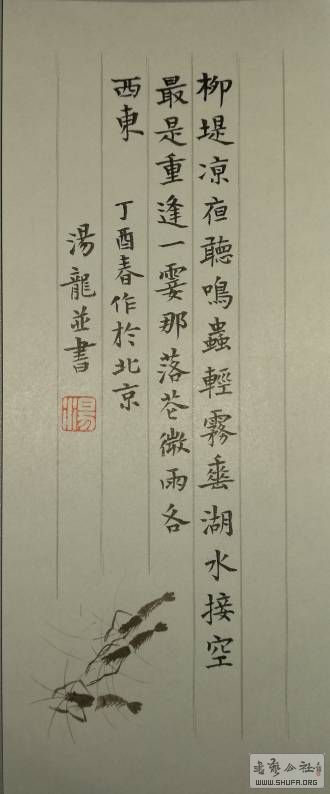 柳堤凉夜聽鳴蟲輕霧垂湖水接空
最是重逢一霎那落花微雨各
西東 丁酉春作於北京
湯龍並書
书艺公社
WWW.SHUFA.ORG